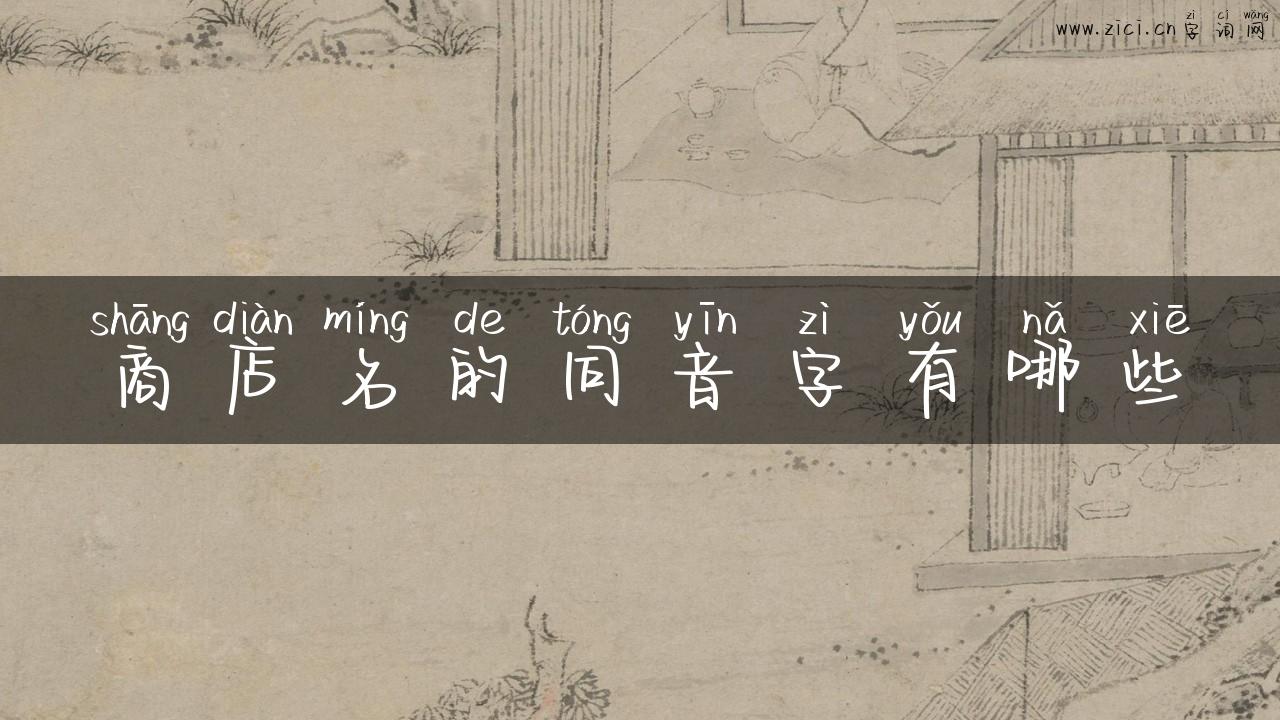 zì cí wǎng
www.zici.cn 字词网
shāng diàn míng de tóng yīn zì yǒu nǎ xiē
商店名的同音字有哪些